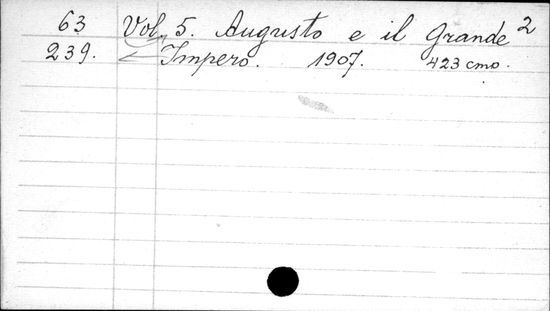 63 Vol. 5. Augusto e il Grande 2
239. Impero. 1907. 423 cmo.